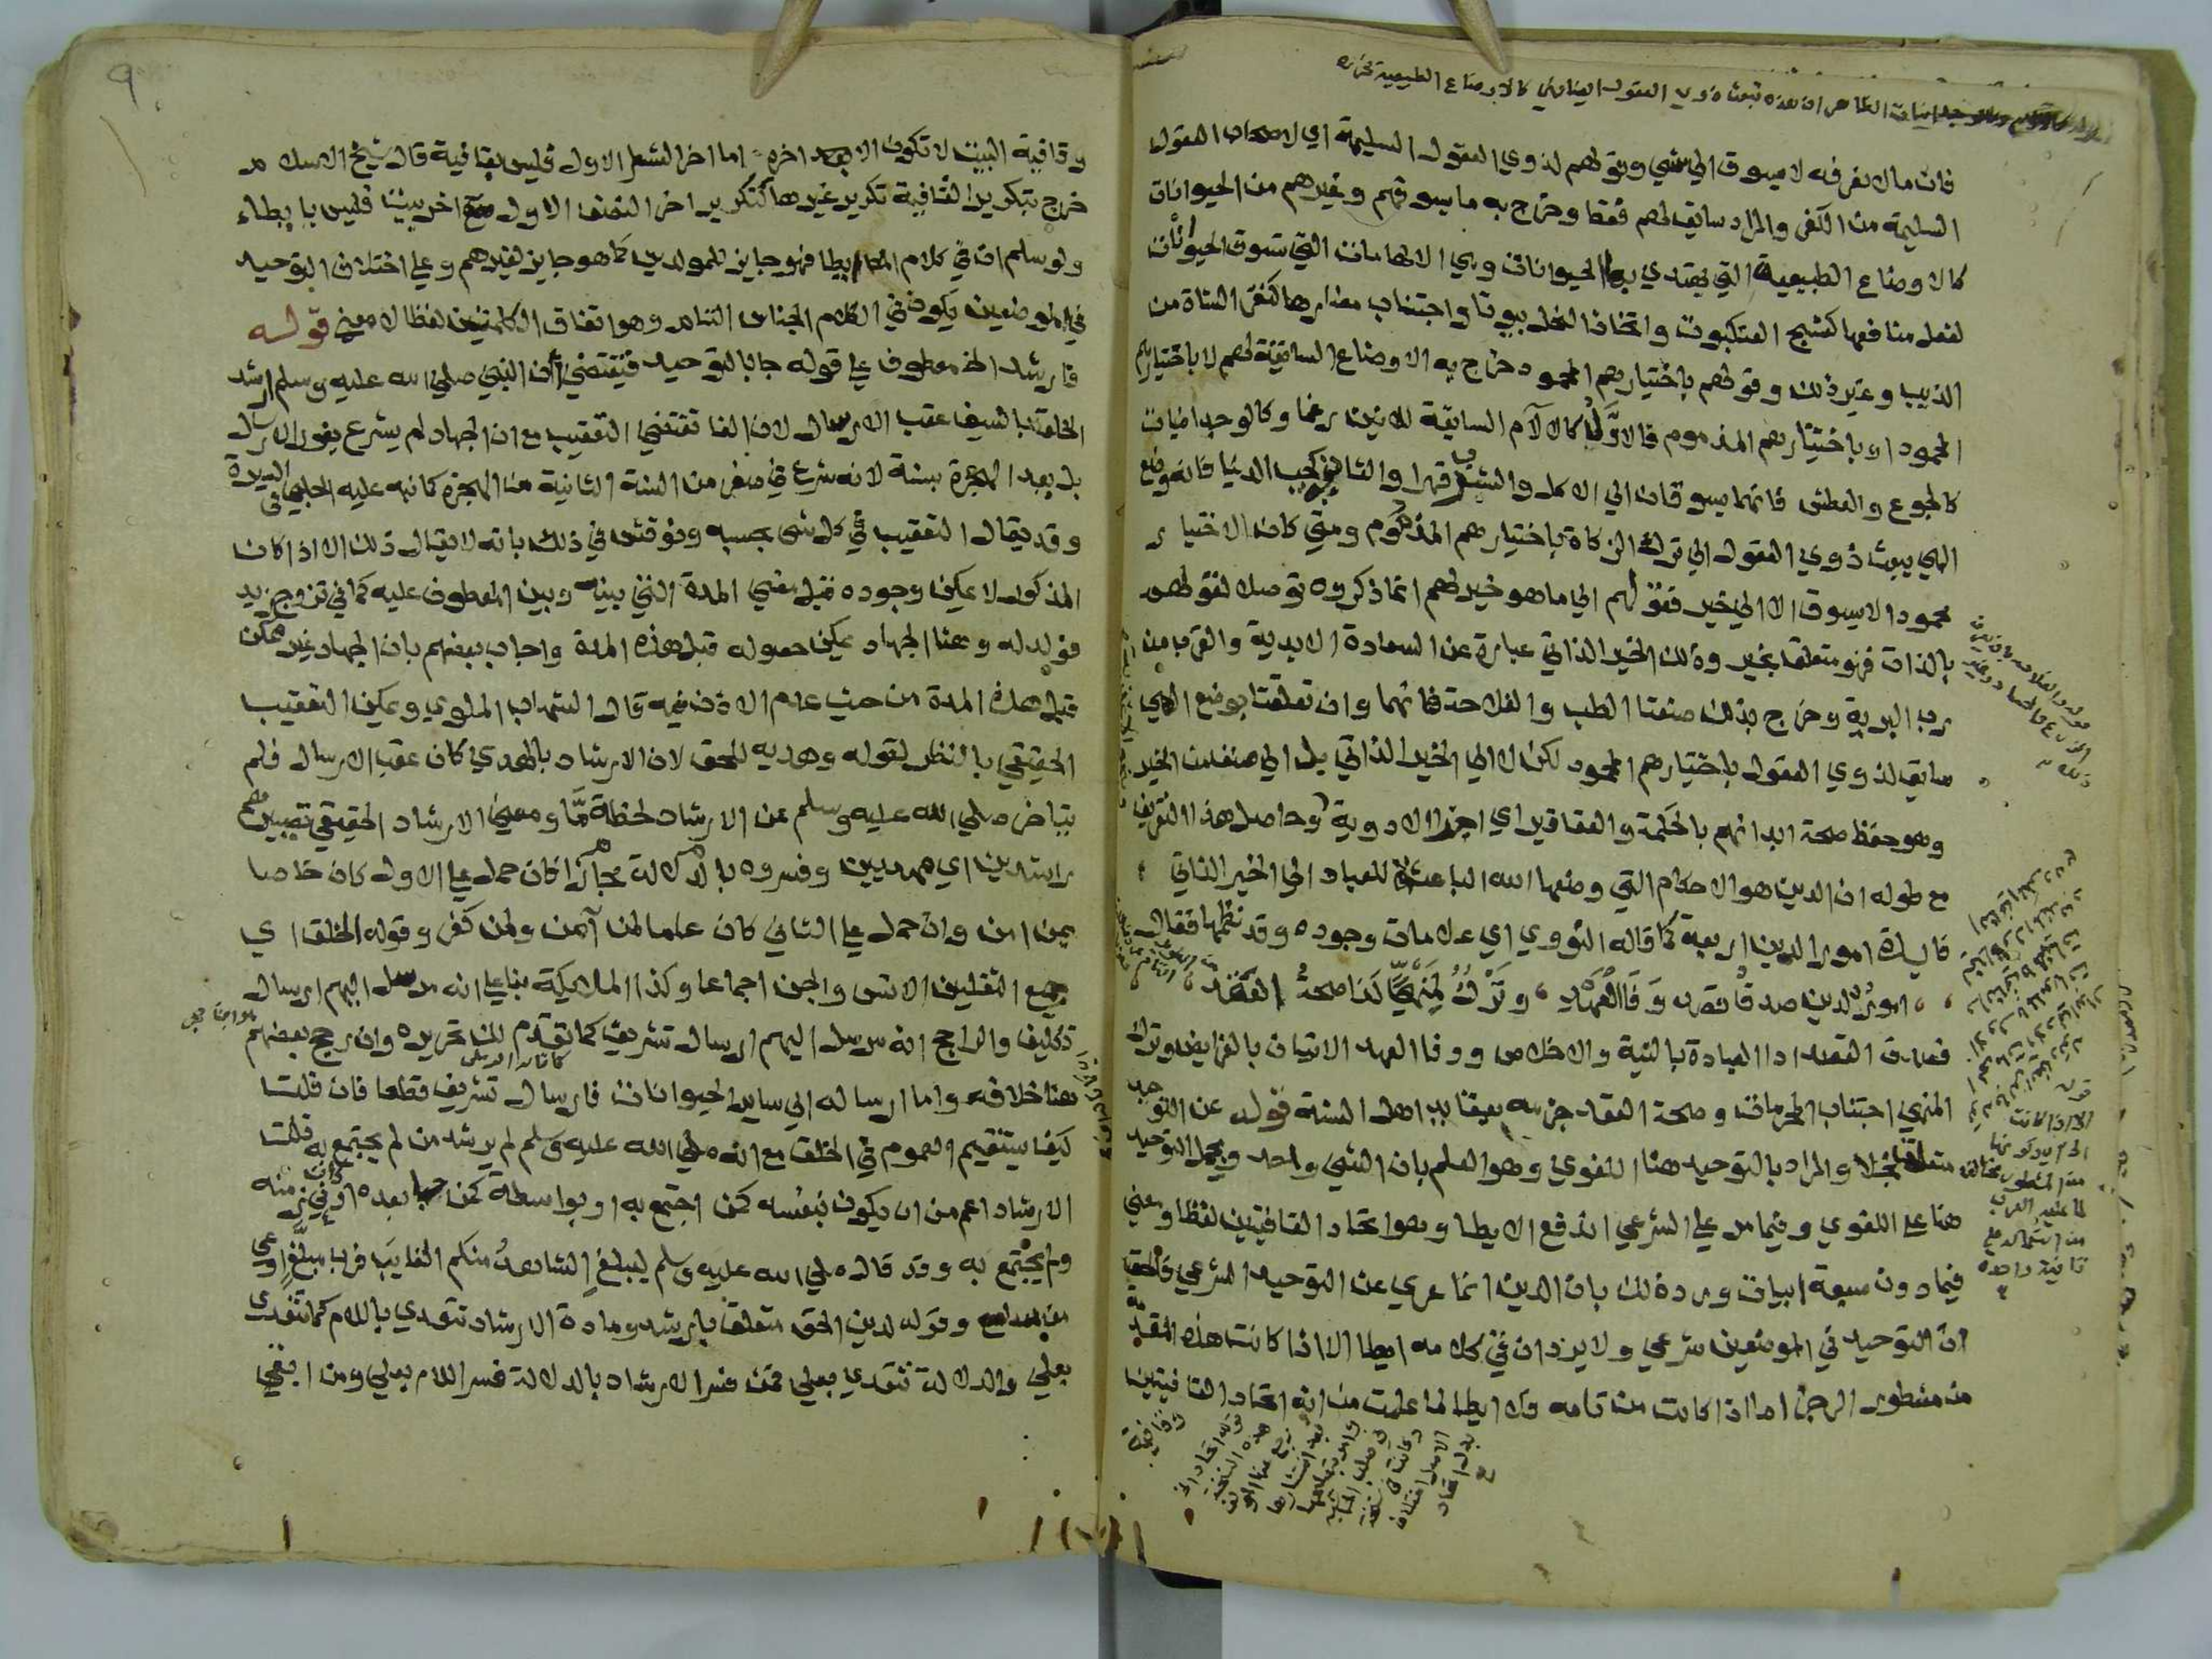 فان ما لا نعرفه لا يسوق الي شي وقولهم لذوي العقول السليمة اي لاصحاب العقول
السليمة من الكفر والمراد سايق لهم فقط وخرج به ما يسوقهم وغيرهم من الحيوانات
كالاوضاع الطبيعية التي يهتدي بها الحيوانات وهي الالهامات التي تسوق الحيوانات
لفعل منافعها كنسج العنكبوت واتخاذ النحل بيوتا واجتناب مضارها كنفر الشاة من
الذيب وغير ذلك وقولهم باختيارهم المحمود خرج به الاوضاع السايقة لهم لا باختيارهم
المحمود او باختيارهم المذموم فالاول كالالام السابقة للانين رغما وكالوجدانيات
كالجوع والعطش فانهما يسوقان الي الاكل والشرب قهرا والثاني كحب الدنيا فانه وضع
الهي يبعث ذوي العقول الي ترك الزكاة باختيارهم المذموم ومتي كان الاختيار
محمودا لا يسوق الا الي خير فقولهم الي ما هو خير لهم انما ذكروه توصلا لقولهم
بالذات فهو متعلق بخير وذلك الخير الذاتي عبارة عن السعادة الابدية والقرب من
رب البرية وخرج بذلك صنعتا الطب والفلاحة فانهما وان تعلقتا بوضع الهي
سايق لذوي العقول باختيارهم المحمود لكن لا الي الخير الذاتي بل الي صنف من الخير
وهو حفظ صحة ابدانهم بالحكمة والعقاقير اي اجزا الادوية وحاصل هذا التعريف
مع طوله ان الدين هو الاحكام التي وضعها الله الباعثة للعباد الي الخير الذاتي
فايدة امور الدين اربعة كما قاله النووي اي علامات وجوده وقد نظمها فقال
امور الدين صدق قصد وفا العهد، وترك لمنهي كذا صحة العقد
فصدق القصد ادا العبادة بالنية والاخلاص ووفا العهد الاتيان بالفرايض وترك
المنهي اجتناب المحرمات وصحة العقد جزمه بعقايد اهل السنة قوله عن التوحيد
متعلق بخلا والمراد بالتوحيد هنا اللغوي وهو العلم بان الشي واحد وبحمل التوحيد
هنا علي اللغوي وفيما مر علي الشرعي اندفع الايطا وهو اتحاد القافيتين لفظا ومعني
فيما دون سبعة ابيات ورد ذلك بان الدين انما عري عن التوحيد الشرعي فالحق
ان التوحيد في الموضعين شرعي ولا يرد ان في كلامه ايطا الا اذا كانت هذه المقدمة
من مشطور الرجز اما اذا كانت من تامه فلا ايطا لما علمت من انه اتحاد القافيتين
وقافية
٩
وقافية البيت لا تكون الا اخره اما اخر الشطر الاول فليس بقافية قال شيخ الاسلام
خرج بتكرير القافية تكرير غيرها كتكرير اخر النصف الاول مع اخر بيت فليس بايطاء
ولو سلم ان في كلام المص ايطا فهو جايز للمولدين كما هو جايز لغيرهم وعلي اختلاف التوحيد
في الموضعين يكون في الكلام الجناس التام وهو اتفاق الكلمتين لفظا لا معني قوله
فارشد الخ معطوف علي قوله جا بالتوحيد فيقتضي ان النبي صلي الله عليه وسلم ارشد
الخلق بالسيف عقب الارسال لان الفا تقتضي التعقيب مع ان الجهاد لم يشرع بفور الارسال
بل بعد الهجرة بسنة لانه شرع في صفر من السنة الثانية من الهجرة كما نبه عليه الحلبي في السيرة
وقد يقال التعقيب في كل شي بحسبه ونوقش في ذلك بانه لا يقال ذلك الا اذا كان
المذكور لا يمكن وجوده قبل مضي المدة التي بينه وبين المعطوف عليه كما في تزوج زيد
فولد له وهنا الجهاد يمكن حصوله قبل هذه المدة واجاب بعضهم بان الجهاد غير ممكن
قبل هذه المدة من حيث عدم الاذن فيه قال الشهاب الملوي ويمكن التعقيب
الحقيقي بالنظر لقوله وهديه للحق لان الارشاد بالهدي كان عقب الارسال فلم
يتاخر صلي الله عليه وسلم عن الارشاد لحظة ما ومعني الارشاد الحقيقي تصييرهم
راشدين اي مهديين وفسروه بالدلالة مجازا كان حمل علي الاول كان خاصا
بمن امن وان حمل علي الثاني كان عاما لمن آمن ولمن كفر وقوله الخلق اي
جميع الثقلين الانس والجن اجماعا وكذا الملايكة بنا علي انه مرسل اليهم ارسال
تكليف والراجح انه مرسل اليهم ارسال تشريف كما تقدم لك تحريره وان رجح بعضهم
هنا خلافه واما ارساله الي ساير الحيوانات فارسال تشريف قطعا فان قلت
كيف يستقيم العموم في الخلق مع انه صلي الله عليه وسلم لم يرشد من لم يجتمع به قلت
الارشاد اعم من ان يكون بنفسه كمن اجتمع به او بواسطة كمن جا بعده او كان في زمنه
ولم يجتمع به وقد قال صلي الله عليه وسلم ليبلغ الشاهد منكم الغايب فرب مبلغ اوعي
من سامع وقوله لدين الحق متعلق بارشد ومادة الارشاد تتعدي باللام كما تتعدي
بعلي والدلالة تتعدي بعلي فمن فسر الارشاد بالدلالة فسر اللام بعلي ومن ابقي